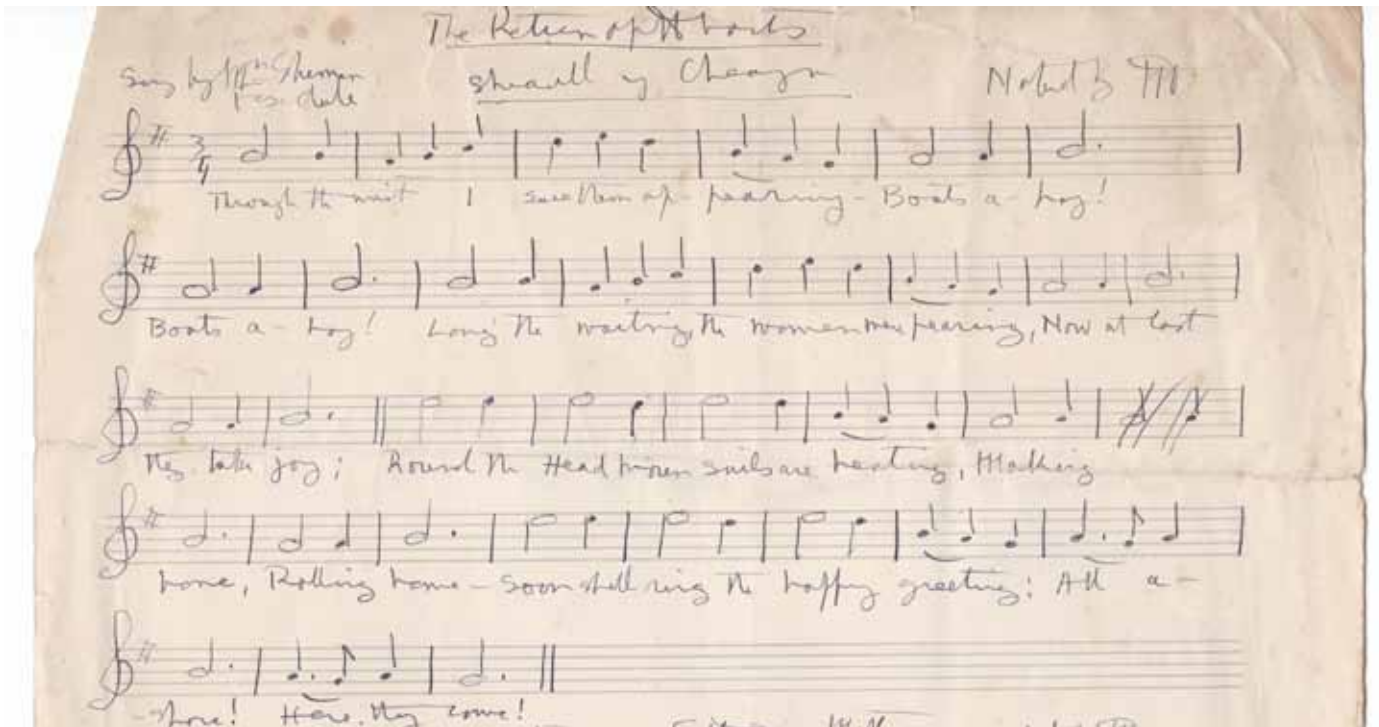 The Return of the boats
Sung by Mrs Sherman
Shenall y Cheayn
Noted by
3/4
Through the mist I see them ap-pearing - Boats a-hoy!
Boats a-hoy! Long the waiting, the women were fearing, Now at last
they take joy; Round the Head brown sails are beating, Making
home, Rolling home - Soon shall ring the happy greeting; All a-
-shore! Here they come!